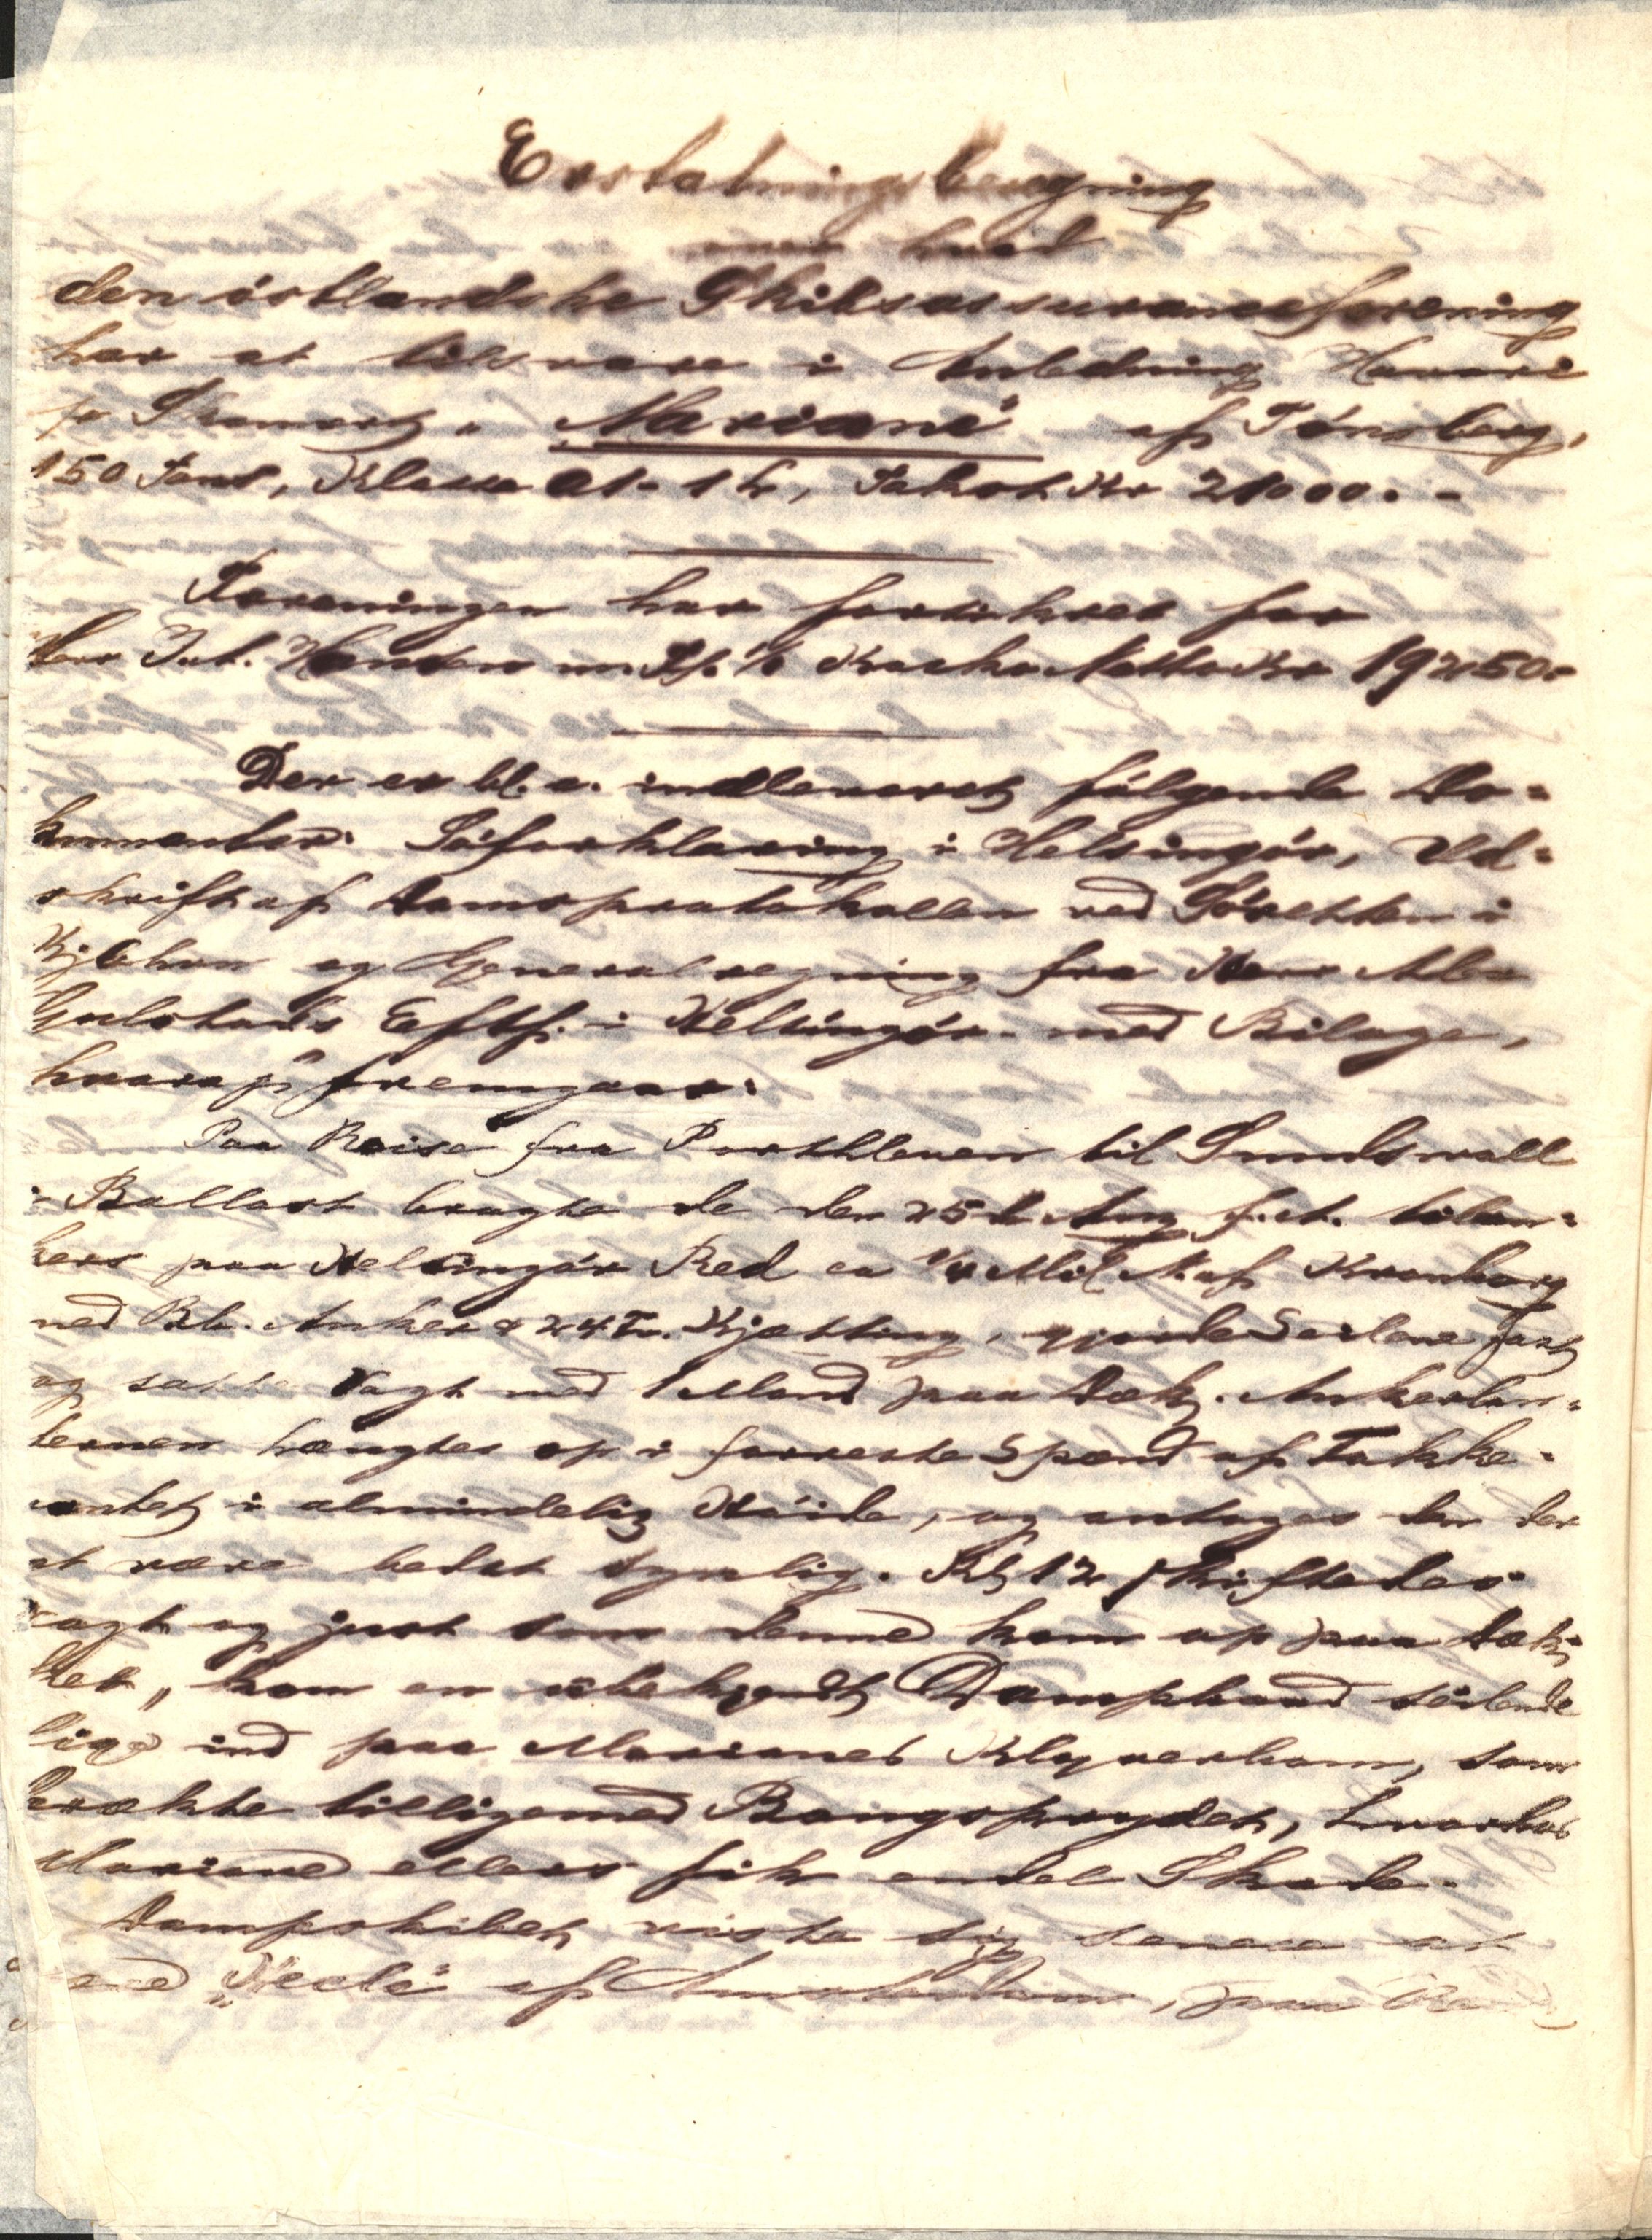 Erstatningsberegning
over hvad
den östlandske Skibsassuranceforening
har at tilsvare i Anledning Havari
pr Skonnert „Mariane" af Tönsberg,
150 Tons, Klasse A1- 1 b, Takst Kr 21000.-
Foreningen har forsikret for
Herr Joh. Hansen m. Sp. % Kasko Netto Kr 19250.-
Der er bl. a. indleveret følgende Do=
kumenter: Söforklaring i Helsingör, Ud=
skrift af Domsprotokollen ved Söretten i
Kjøbhvn og Generalregning fra Herr Alex
Eftf. i Helsingör med Bilage,
hvoraf fremgaar:
Paa Reise fra Porthleven til Sundsvall
i Ballast bragte de den 25de Aug f. A. tilan=
kers paa Helsingör Red ca ¼ Mil N. af Kronborg
med Bb. Anker & 24 Fv. Kjætting, gjorde Seilene fast
og satte Vagt med 1 Mand paa Dæk. Ankerlan=
ternen hængtes op i forreste Spænd af Fokke=
vantet i almindelig Höide, og antoges den der
at være bedst synlig. Kl 12 skiftedes
vagt og just som denne kom op paa Dæk=
ket, kom en ubekjendt Dampbaad seilende
lige ind paa Marianes Klyverbom, som
brækkte tilligemed Baugsprydet, hvorhos
Mariane ellers fik endel Skade.
Dampskibet viste sig senere at
være „Hecla" af Amsterdam, paa